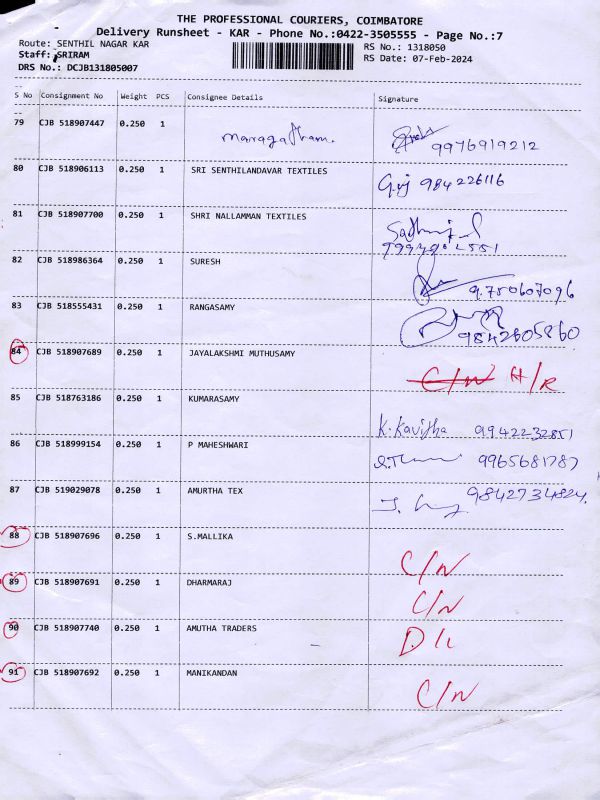 THE PROFESSIONAL COURIERS, COIMBATORE
Delivery Runsheet - KAR - Phone No.:0422-3505555 - Page No.:7
Route: SENTHIL NAGAR KAR RS No.: 1318050
Staff: SRIRAM RS Date: 07-Feb-2024
DRS No.: DCJB131805007
S No Consignment No Weight PCS Consignee Details Signature
79 CJB 518907447 0.250 1 maragatham. 9976919212
80 CJB 518906113 0.250 1 SRI SENTHILANDAVAR TEXTILES 984226116
81 CJB 518907700 0.250 1 SHRI NALLAMMAN TEXTILES
82 CJB 518986364 0.250 1 SURESH 9750607096
83 CJB 518555431 0.250 1 RANGASAMY 9842605860
84 CJB 518907689 0.250 1 JAYALAKSHMI MUTHUSAMY C/N H/R
85 CJB 518763186 0.250 1 KUMARASAMY K. Kavitha 9942232851
86 CJB 518999154 0.250 1 P MAHESHWARI 9965681787
87 CJB 519029078 0.250 1 AMURTHA TEX 9842734824.
88 CJB 518907696 0.250 1 S.MALLIKA C/N
89 CJB 518907691 0.250 1 DHARMARAJ C/N
90 CJB 518907740 0.250 1 AMUTHA TRADERS
91 CJB 518907692 0.250 1 MANIKANDAN C/N